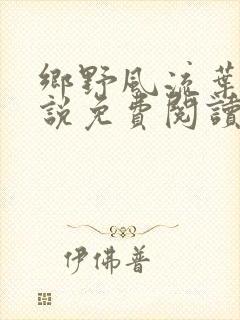 鄉野風流葉
説免費閱讀
伊佛普